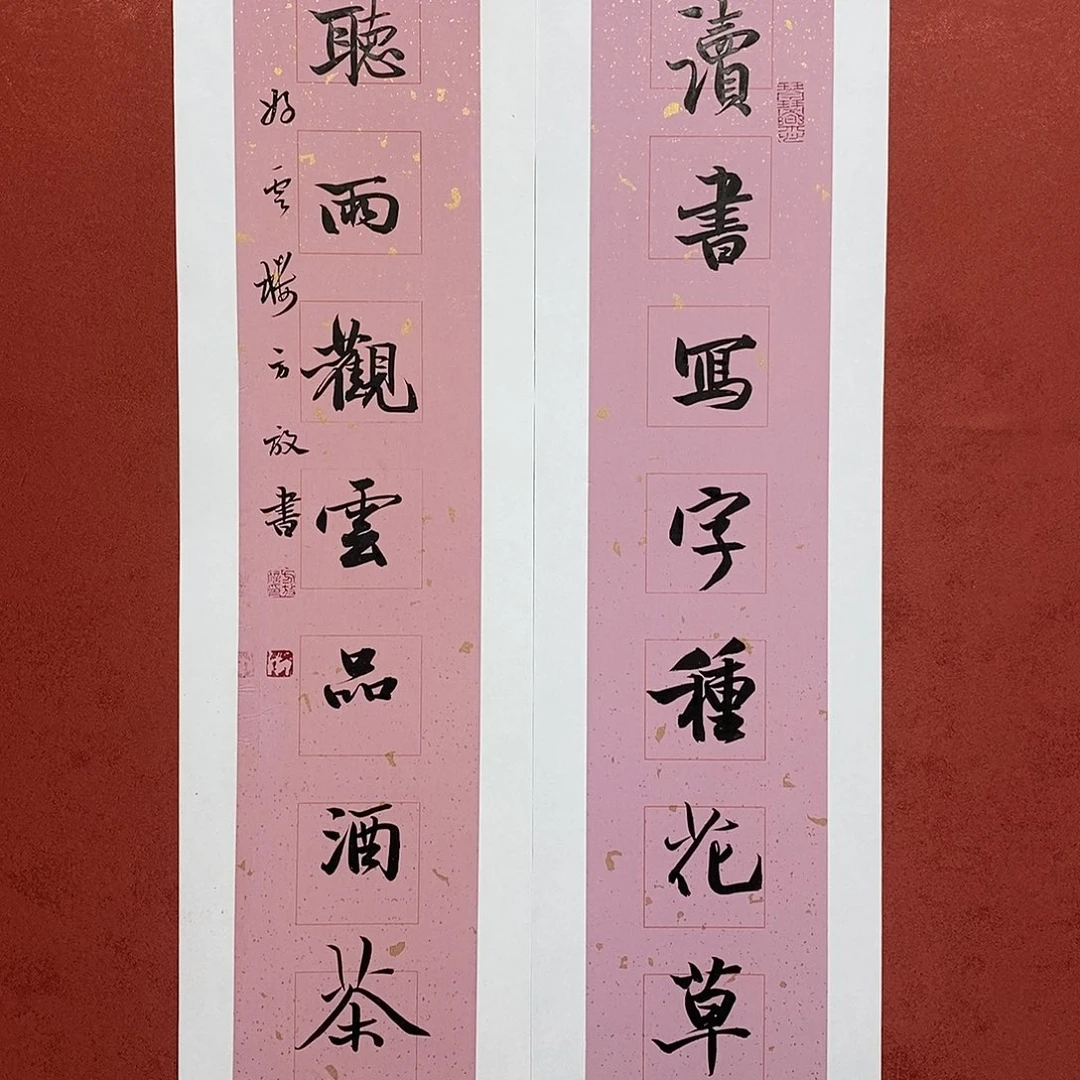 讀書寫字種花草
聽雨觀雲品酒茶
好雲樓方放書